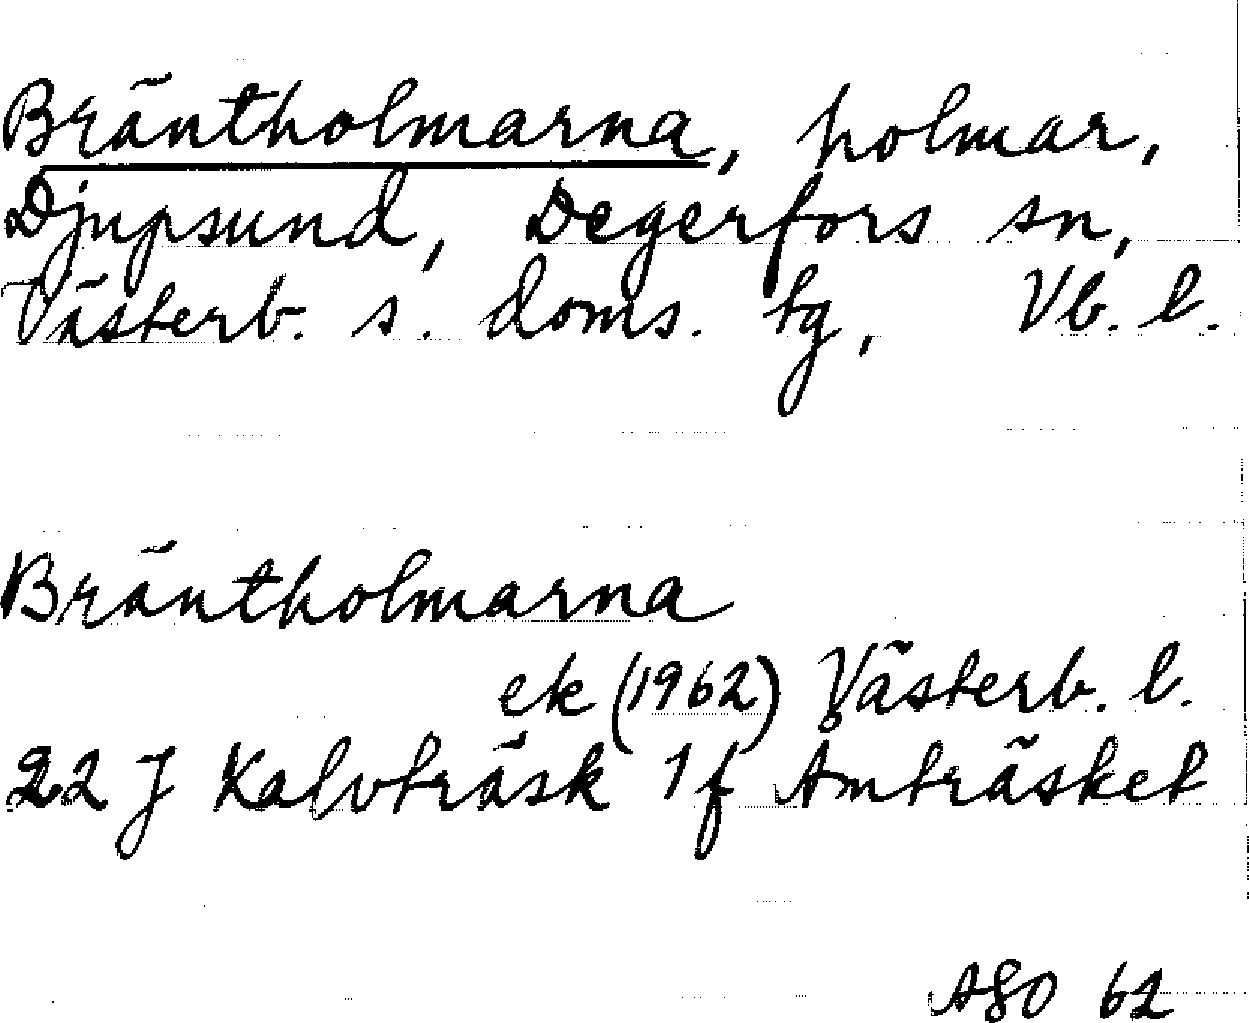 Bräntholmarna, holmar,
Djupsund, Degerfors sn,
Västerb. s. doms. tg, Vb. l.
Bräntholmarna
ek (1962) Västerb. l.
22 J Kalvträsk 1 f Amträsket
ASO 62